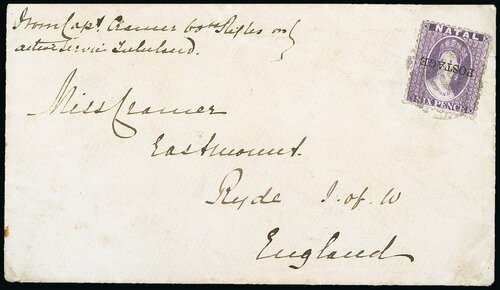 From Capt. Cramer 60th Rifles on
active service Zululand.
NATAL
POSTAGE
SIX PENCE
Miss Cramer
Eastmount.
Ryde I. of W
England